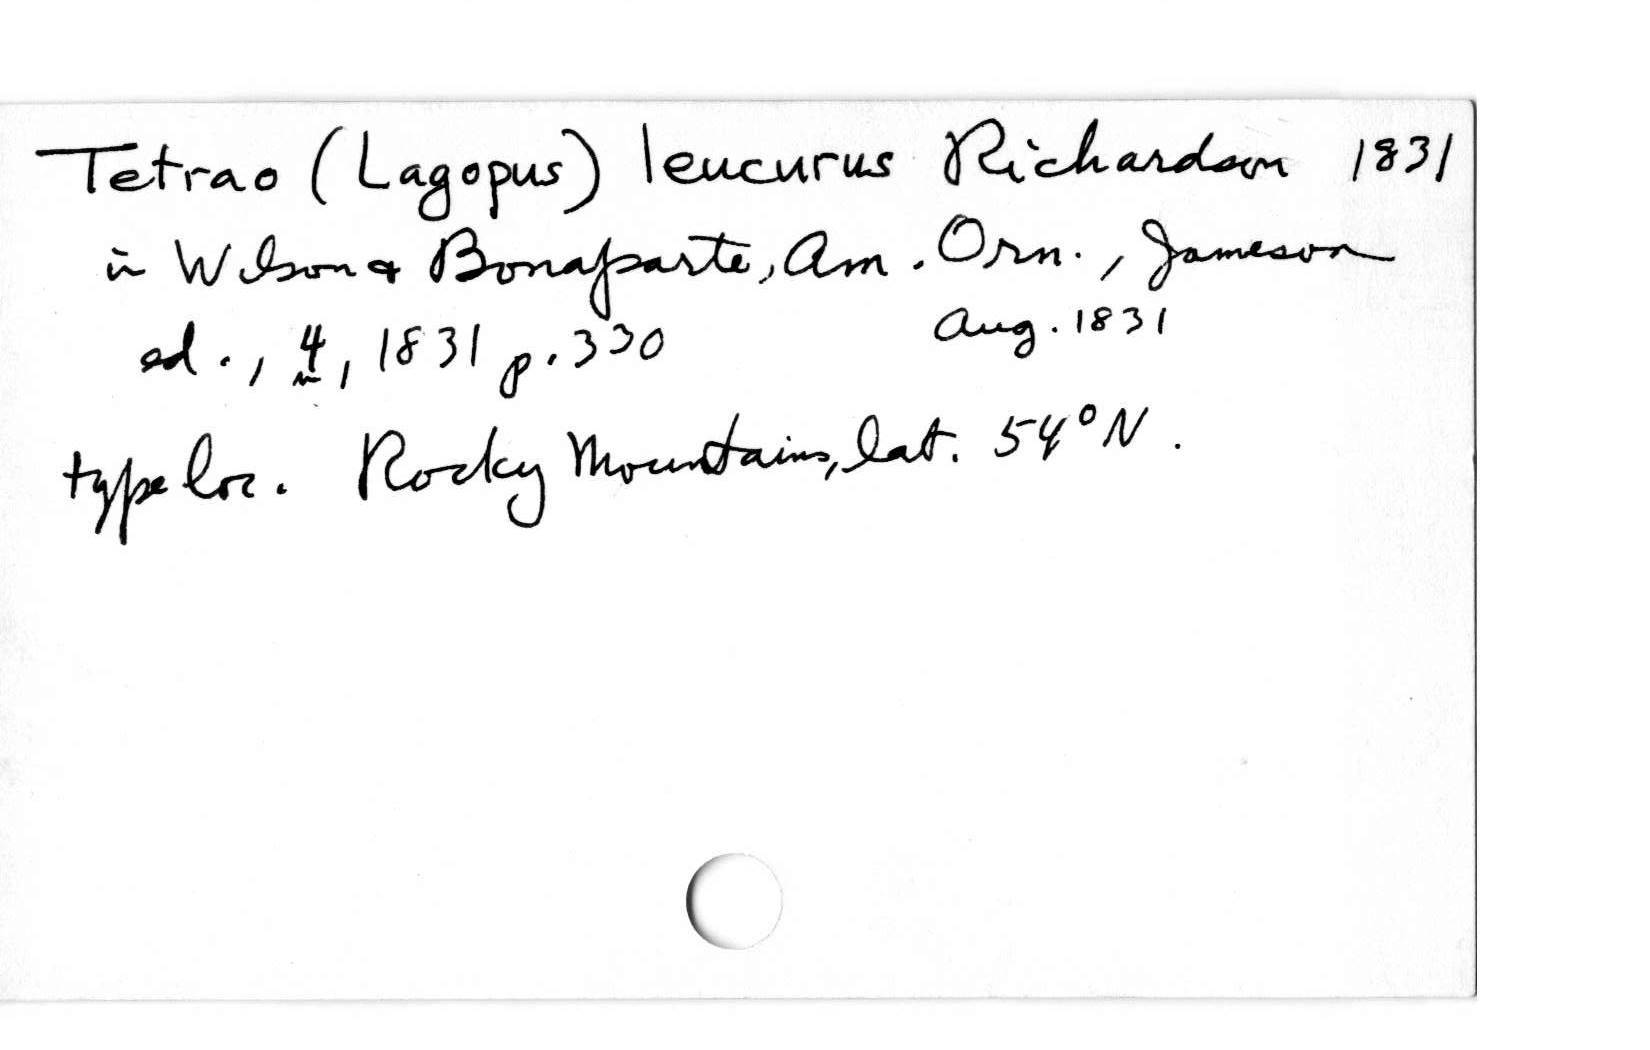 Tetrao (Lagopus) leucurus Richardson 1831
in Wilson & Bonaparte, Am. Orn., Jameson
ed., 4, 1831 p. 330 Aug. 1831
type loc. Rocky Mountains, lat. 54° N.